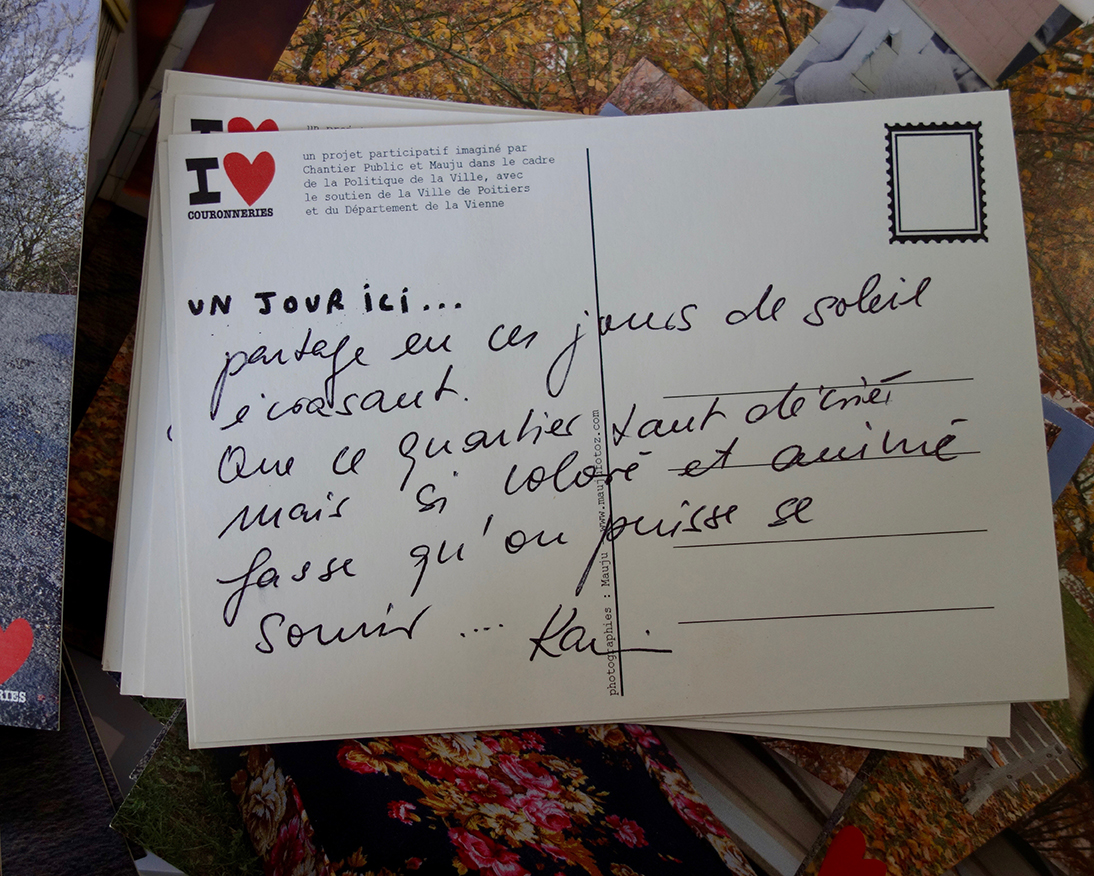 I ♥
COURONNERIES
un projet participatif imaginé par
Chantier Public et Mauju dans le cadre
de la Politique de la Ville, avec
le soutien de la Ville de Poitiers
et du Département de la Vienne
UN JOUR ici...
partage en ces jours de soleil
écrasant.
Que ce quartier tant décrié
mais si coloré et animé
fasse qu'on puisse se
sourir ....
photographies : Mauju - www.maujufotoz.com
RIES